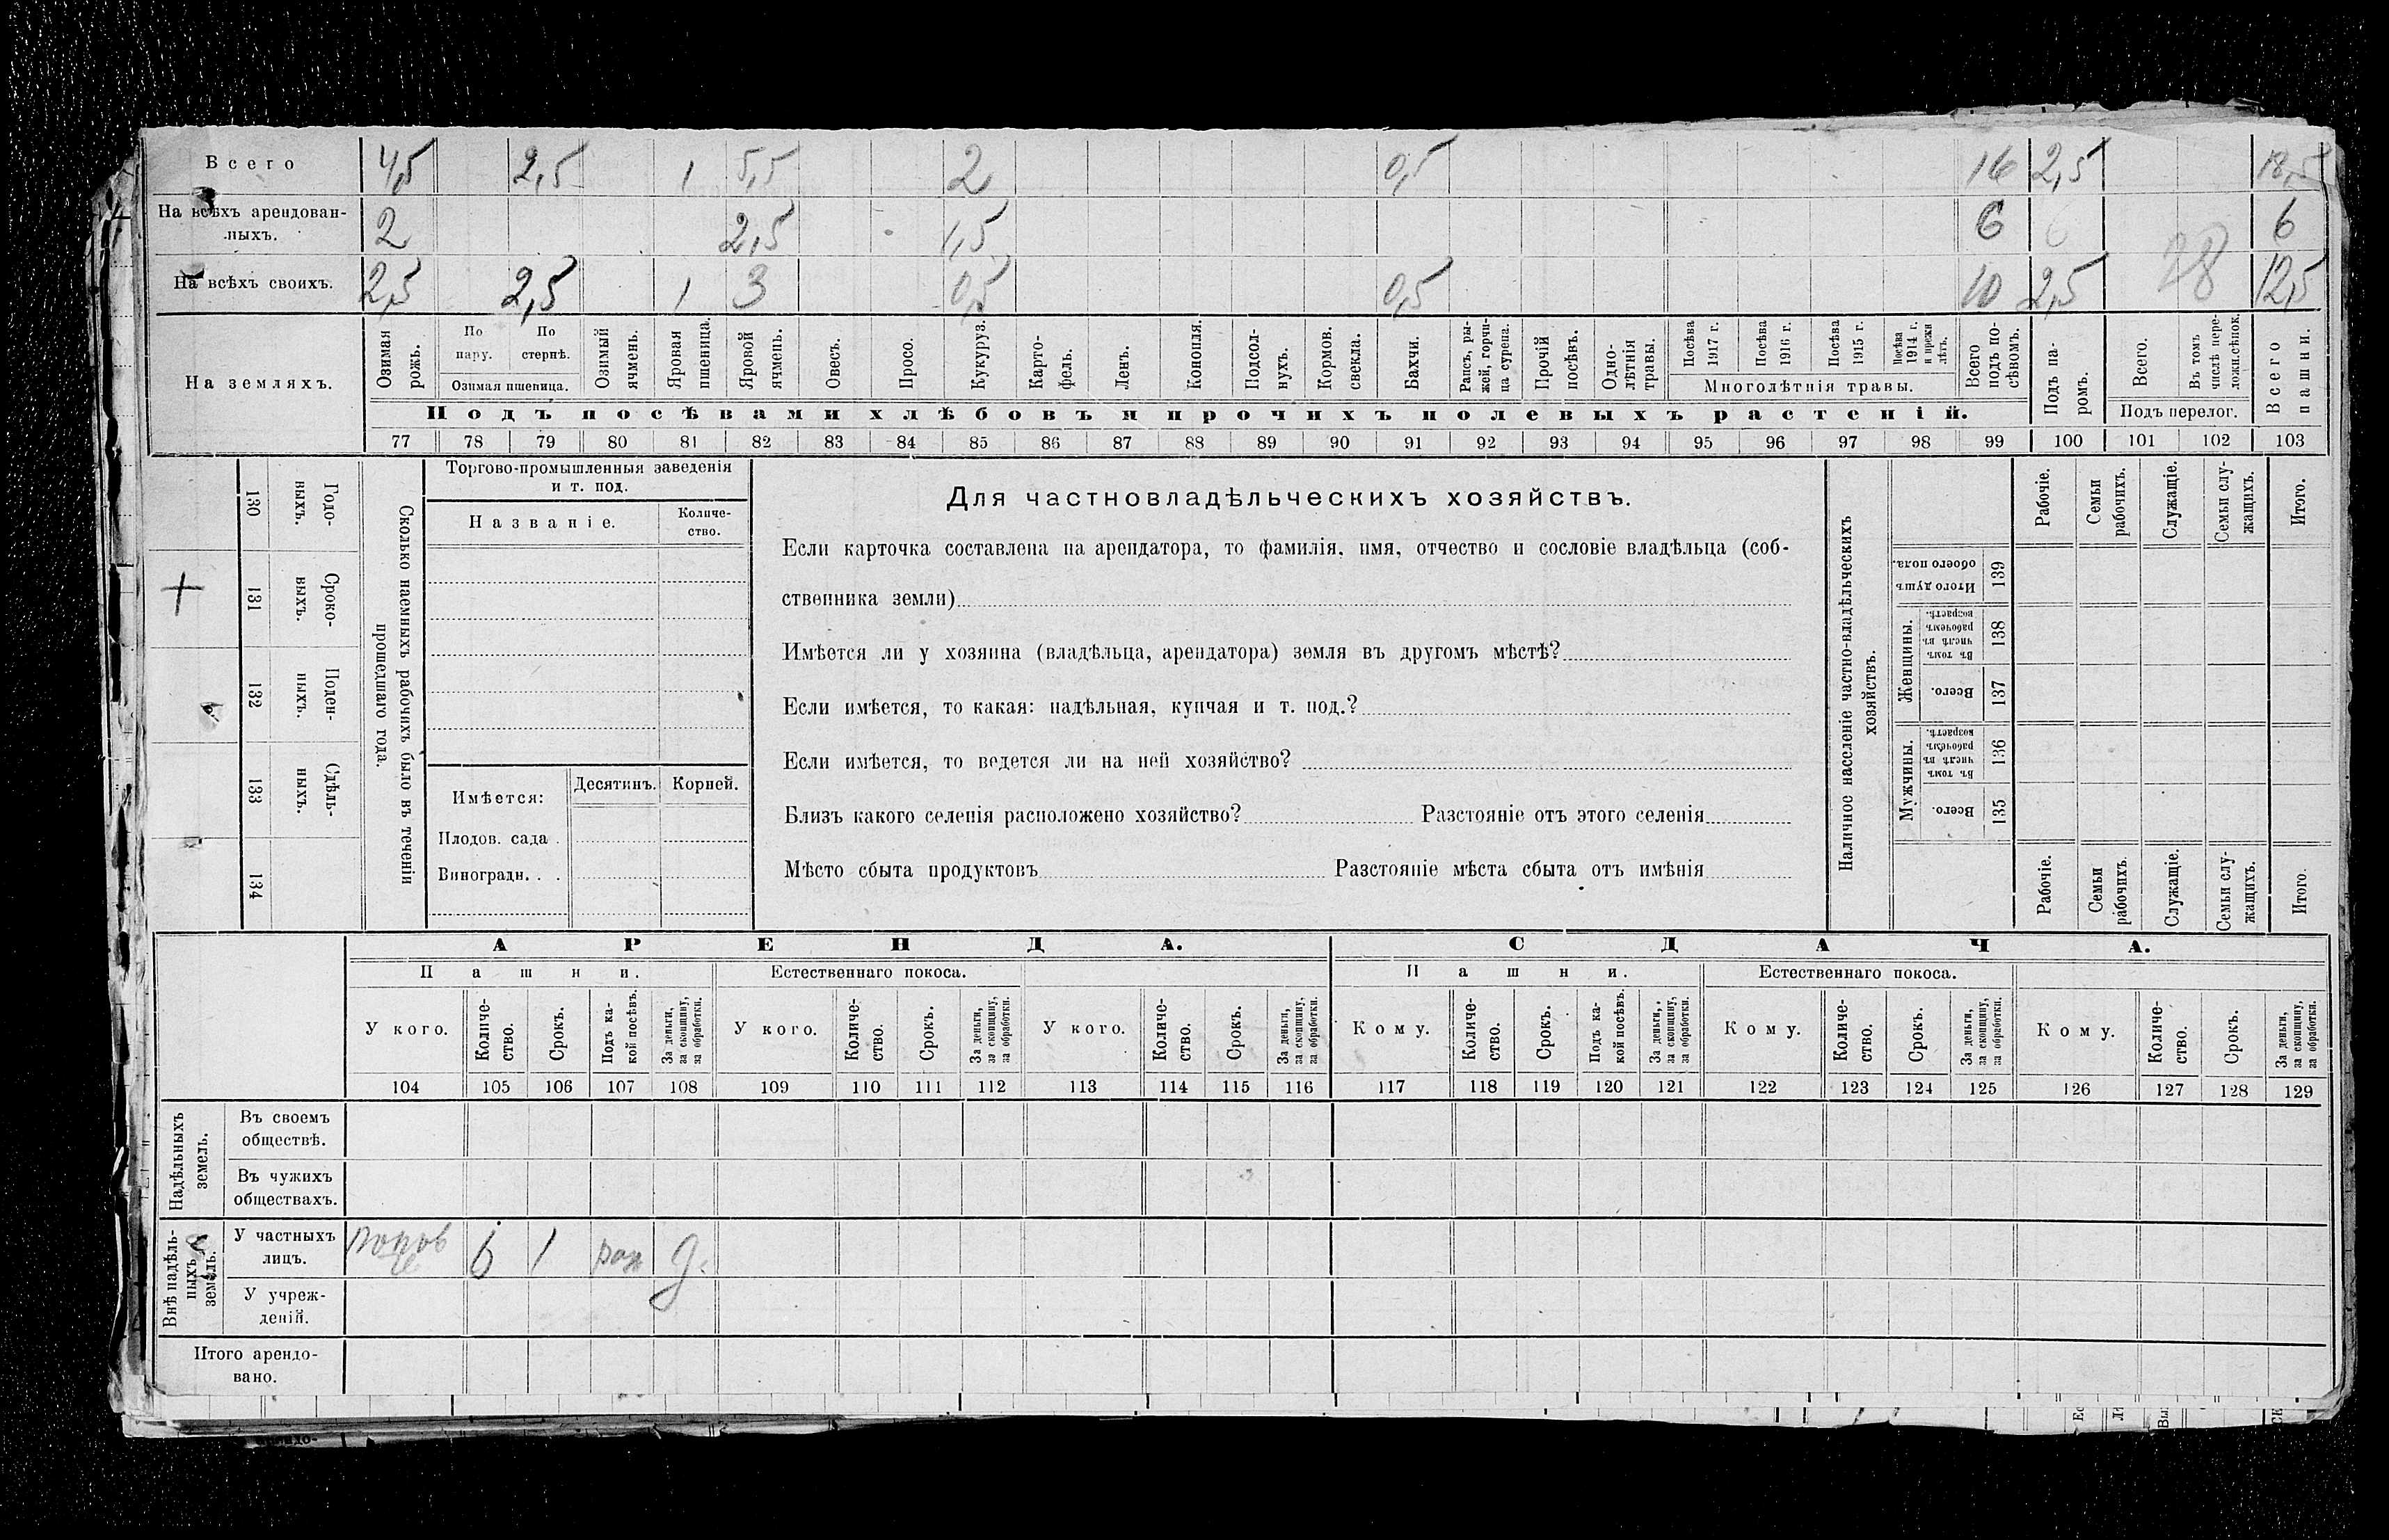 Всего 4,5 2,5 1 5,5 2 0,5 16 2,5 18,5
На всѣхъ арендован-
ныхъ. 2 2,5 1,5 6 6 6
На всѣхъ своихъ. 2,5 2,5 1 3 0,5 0,5 10 2,5 28 12,5
На земляхъ.
Озимая рожь.
По пару.
По стернѣ.
Озимая пшеница.
Озимый ячмень.
Яровая пшеница.
Яровой ячмень.
Овесъ.
Просо.
Кукуруз.
Карто-
фель.
Ленъ.
Конопля.
Подсол-
нухъ.
Кормов. свекла.
Бахчи.
Рапсъ, ры-
жей, горчи-
ца сурепа.
Прочій посѣвъ.
Одно-
лѣтнія травы.
Посѣва 1917 г.
Посѣва 1916 г.
Посѣва 1915 г.
Посѣва 1914 г. и прежн лѣтъ.
Многолѣтнія травы.
Всего подъ по-
сѣвомъ.
Подъ па-
ромъ.
Всего.
Въ томъ числѣ пере-
ложн.сѣнок.
Подъ перелог.
Всего пашни.
Подъ посѣвами хлѣбовъ и прочихъ полевыхъ растеній.
77 78 79 80 81 82 83 84 85 86 87 88 89 90 91 92 93 94 95 96 97 98 99 100 101 102 103
130 Годо-
выхъ.
131 Сроко-
выхъ.
132 Поден-
ныхъ.
133 Сдѣль-
ныхъ.
134
Сколько наемныхъ рабочихъ было въ теченіи
прошедшаго года.
Торгово-промышленныя заведенія
и т. под.
Названіе.
Количе-
ство.
Имѣется:
Десятинъ.
Корней.
Плодов. сада .
Виноградн. . .
Для частновладѣльческихъ хозяйствъ.
Если карточка составлена на арендатора, то фамилія, имя, отчество и сословіе владѣльца (соб-
ственника земли)
Имѣется ли у хозяина (владѣльца, арендатора) земля въ другомъ мѣстѣ?
Если имѣется, то какая: надѣльная, купчая и т. под.?
Если имѣется, то ведется ли на ней хозяйство?
Близъ какого селенія расположено хозяйство? Разстояніе отъ этого селенія
Мѣсто сбыта продуктовъ Разстояніе мѣста сбыта отъ имѣнія
Наличное населеніе частно-владѣльческихъ
хозяйствъ.
Рабочіе.
Семьи рабочихъ.
Служащіе.
Семьи слу-
жащихъ.
Итого.
Итого душъ обоего пола. 139
Женщины.
Въ томъ числѣ въ рабочемъ возрастѣ. 138
Всего. 137
Мужчины.
Въ томъ числѣ въ рабочемъ возрастѣ. 136
Всего. 135
Рабочіе.
Семьи рабочихъ.
Служащіе.
Семьи слу-
жащихъ.
Итого.
АРЕНДА. СДАЧА.
Пашни. Естественнаго покоса. Пашни. Естественнаго покоса.
У кого.
Количе-
ство.
Срокъ.
Подъ ка-
кой посѣвъ.
За деньги, за скопщину, за обработки.
У кого.
Количе-
ство.
Срокъ.
За деньги, за скопщину, за обработки.
У кого.
Количе-
ство.
Срокъ.
За деньги, за скопщину, за обработки.
Кому.
Количе-
ство.
Срокъ.
Подъ ка-
кой посѣвъ.
За деньги, за скопщину, за обработки.
Кому.
Количе-
ство.
Срокъ.
За деньги, за скопщину, за обработки.
Кому.
Количе-
ство.
Срокъ.
За деньги, за скопщину, за обработки.
104 105 106 107 108 109 110 111 112 113 114 115 116 117 118 119 120 121 122 123 124 125 126 127 128 129
Надѣльныхъ
земель.
Въ своемъ
обществѣ.
Въ чужихъ
обществахъ.
Внѣ надѣль-
ныхъ
земель.
У частныхъ
лицъ. 6 1 д.
У учреж-
деній.
Итого арендо-
вано.